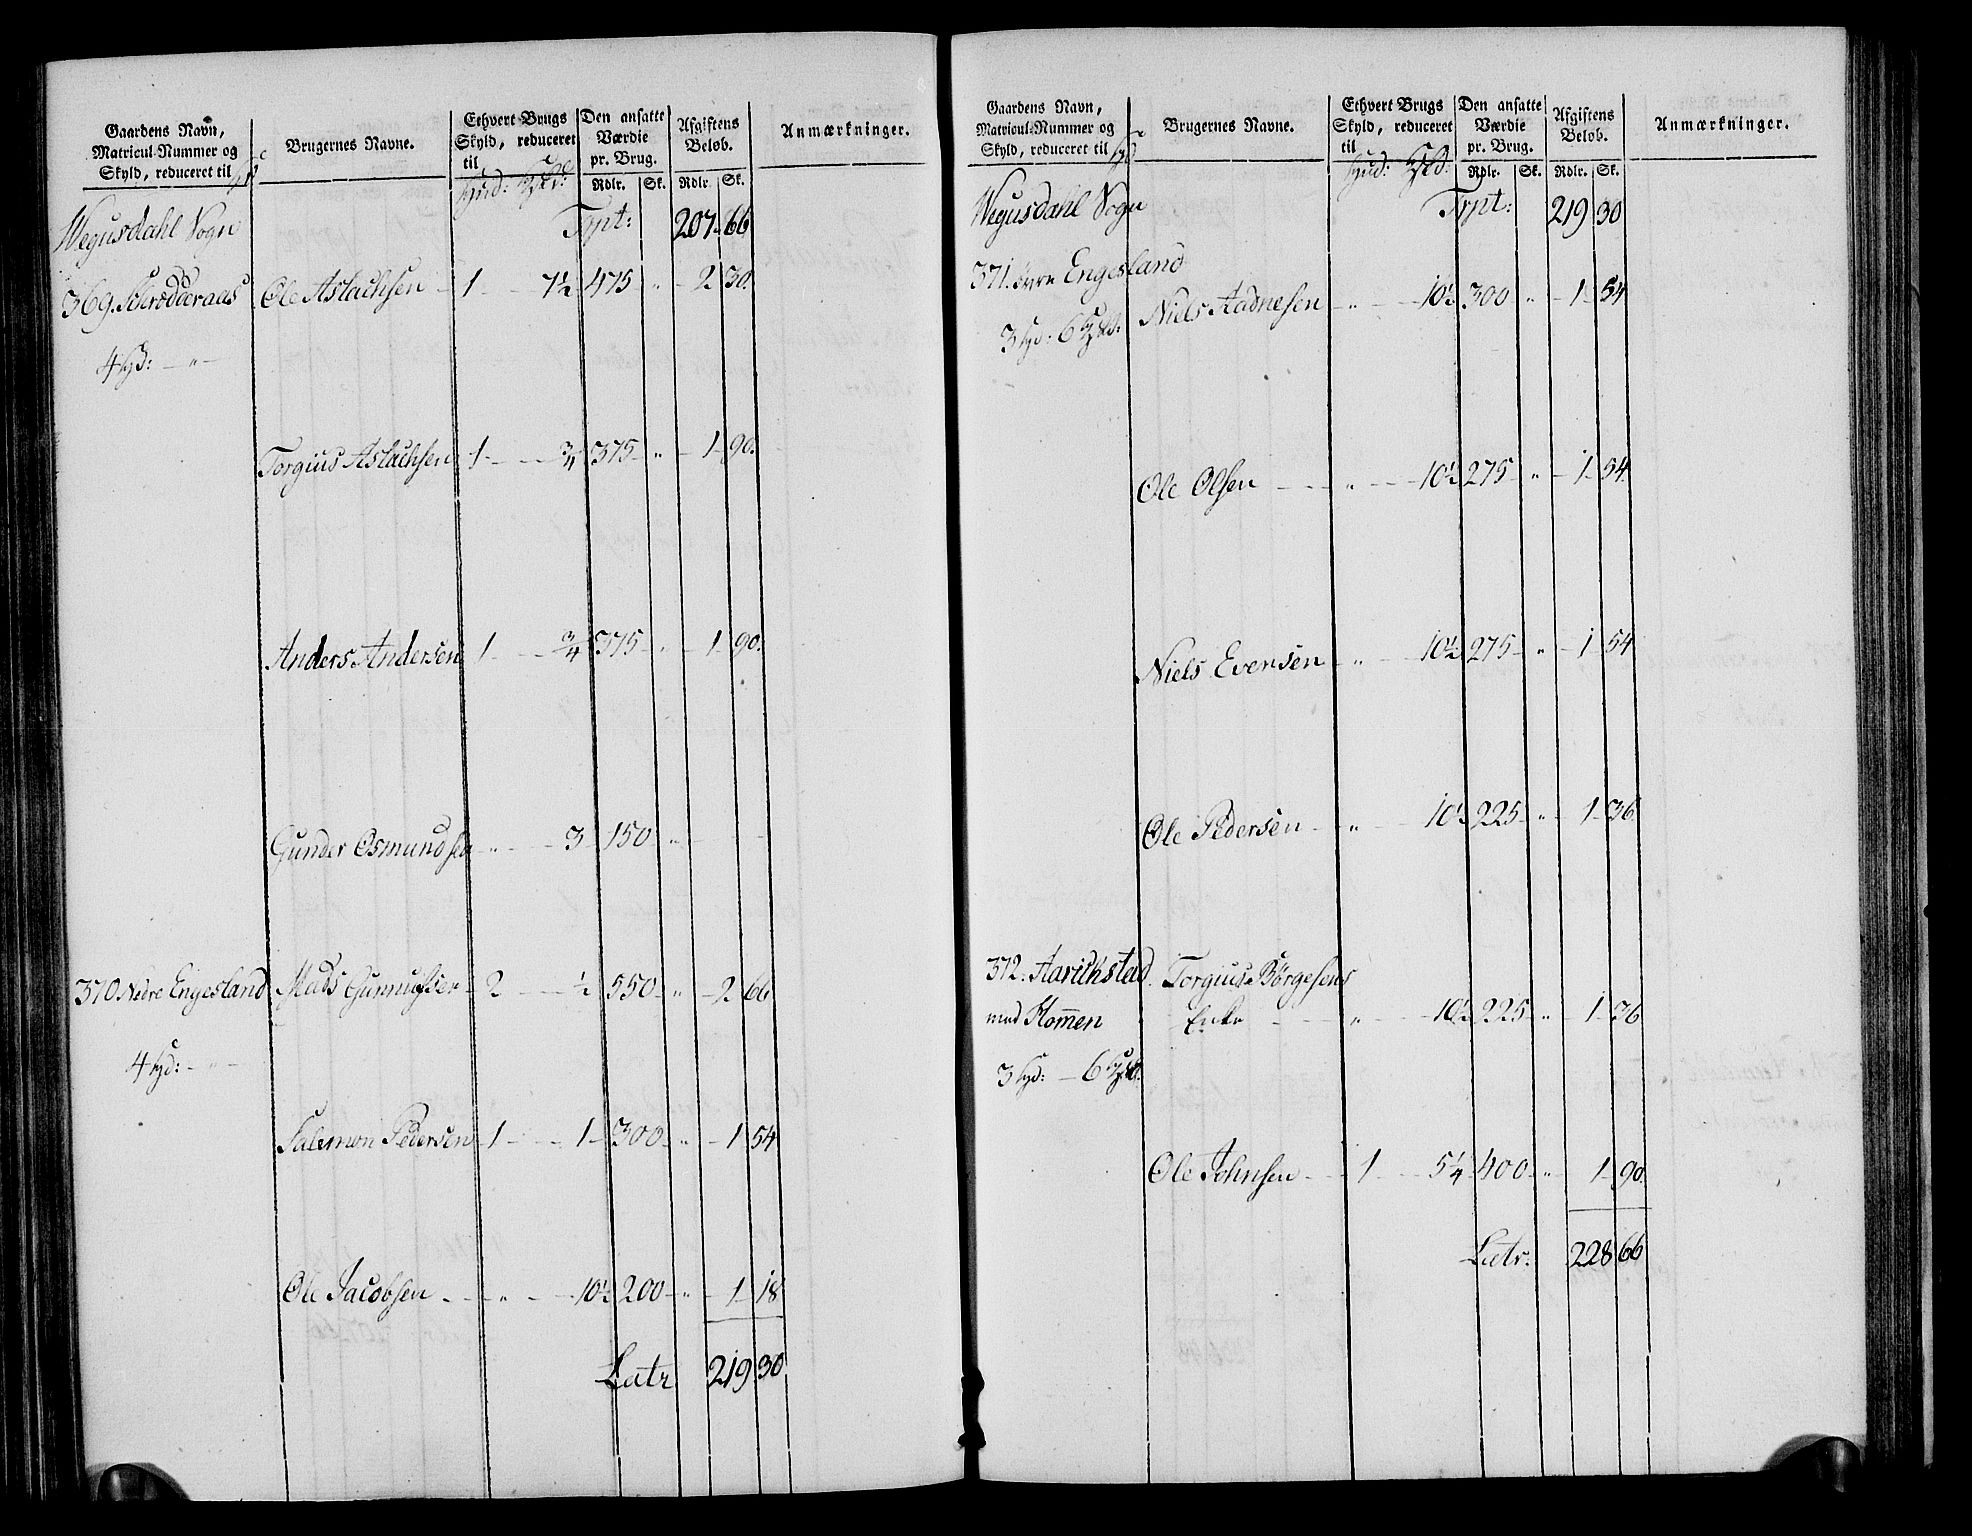 Gaardens Navn,
Matricul-Nummer og
Skyld, reduceret til
Brugernes Navne.
Ethvert Brugs
Skyld, reduceret
til
Den ansatte
Værdie
pr. Brug.
Rdlr. Sk.
Afgiftens
Beløb.
Rdlr. Sk.
Anmærkninger.
Wegusdahl Sogn Trpt: 207 66
369. Schrodderaas Ole Aslachsen 1 - 7½ 475 " 2 30.
4 hd: - " -
Torgius Aslachsen 1 - ¾ 375 " 1 90.
Anders Andersen 1 - ¾ 375 " 1 90.
Gunder Osmundsen " - 3 150 " -
370 Nedre Engesland Mads Gunnufsen 2 - ½ 550 " 2 66
4 hd: - " -
Salemon Pedersen 1 - 1 300 " 1 54
Ole Jacobsen " - 10½ 200 " 1 18
Latr 219 30
Gaardens Navn,
Matricul-Nummer og
Skyld, reduceret til
Brugernes Navne.
Ethvert Brugs
Skyld, reduceret
til
Den ansatte
Værdie
pr. Brug.
Rdlr. Sk.
Afgiftens
Beløb.
Rdlr. Sk.
Anmærkninger.
Wegusdahl Sogn Trpt: 219 30
371. øvre Engesland
Niels Aadnesen " - 10½ 300 " 1 54
3 hd: 6
Ole Olsen " - 10½ 275 " 1 54.
Niels Evensen " - 10½ 275 " 1 54
Ole Pedersen " - 10½ 225 " 1 36
372. Aarichstad Torgius Børgesens
med Hom̅en Enke " - 10½ 225 " 1 36
3 hd: - 6
Ole Johnsen 1 - 5¼ 400 " 1 90.
Latr: 228 66